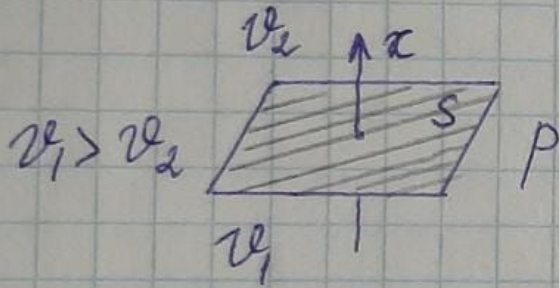 v₂ x
S
v₁ > v₂ P
v₁